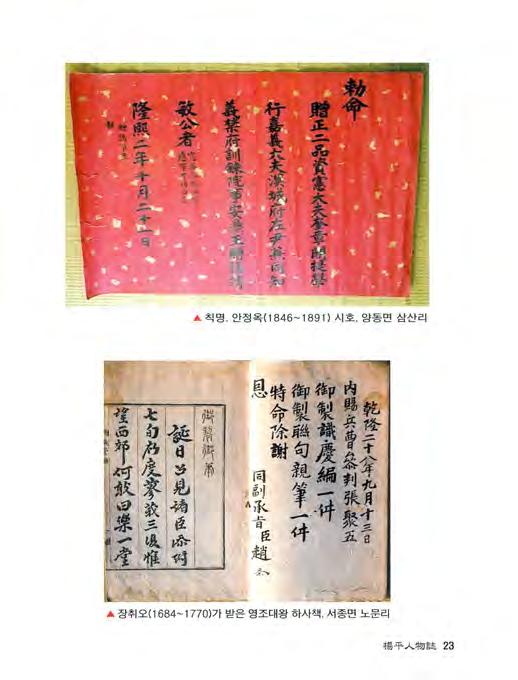 勅命
贈正二品資憲大夫奎章閣提學
行嘉義大夫漢城府左尹兼同知
義禁府訓鍊院事安
敏公者
隆熙二年十月二十一日
▲ 칙명, 안정옥(1846~1891) 시호, 양동면 삼산리
乾隆二十八年九月十三日
內賜兵曹參判張聚五
御製識慶編一件
御製聯句親筆一件
特命除謝
恩
同副承旨臣趙
誕日召見諸臣
七旬
望西郊何敢曰樂一堂
▲ 장취오(1684~1770)가 받은 영조대왕 하사책, 서종면 노문리
楊平人物誌 23